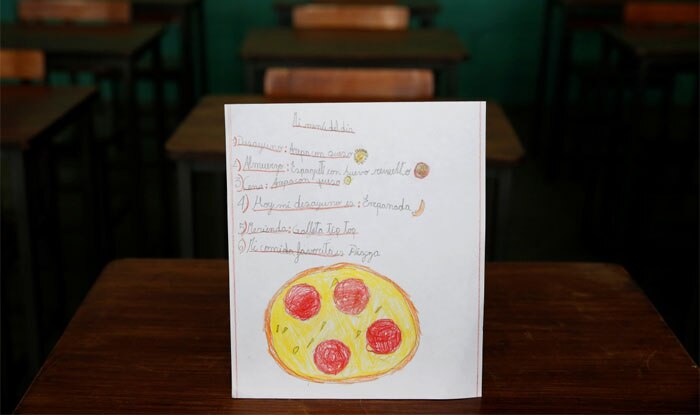 Mi menú del día
1) Desayuno: Arepa con queso
2) Almuerzo: Espagueti con huevo revuelto
3) Cena: Arepa con queso
4) Hoy mi desayuno es: Empanada
5) Merienda: Galleta Tip Top
6) Mi comida favorita es Pizza